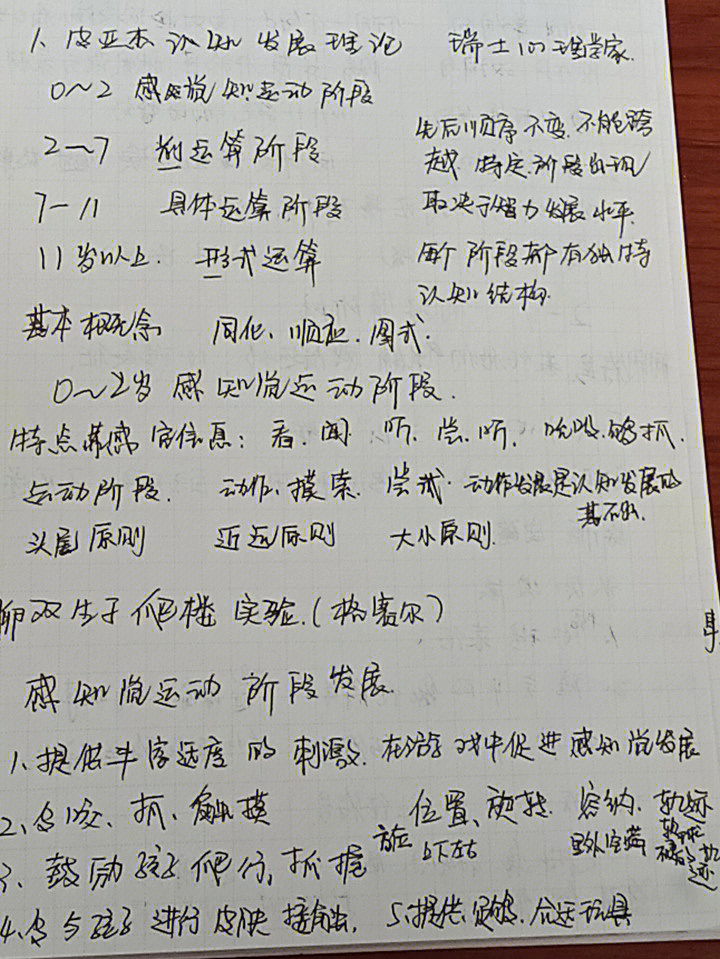 1、皮亚杰认知发展理论 瑞士心理学家.
0～2 感知觉知运动阶段
2～7 前运算阶段
先后顺序不变.不能跨
越 特定.阶段出现
7－11 具体运算阶段 取决于智力发展水平.
11岁以上. 形式运算 每个阶段都有独特
认知结构.
基本概念 同化、顺应.图式.
0～2岁 感知觉运动阶段.
特点靠感官信息：看.闻.听.尝.听. 吮吸.够抓.
运动阶段. 动作.摸索.尝试.动作发展是认知发展的
基石.
头尾原则 近远原则 大小原则.
卵双生子爬楼实验.(格塞尔)
感知觉运动阶段发展.
1、提供丰富适度的刺激.在游戏中促进感知觉发展
2、多咬、抓、触摸 位置、旋转. 容纳. 轨迹
方位 上下左右 里外空满
3、鼓励孩子爬行,抓握
4、多与孩子进行皮肤接触, 5、提供足够.合适玩具